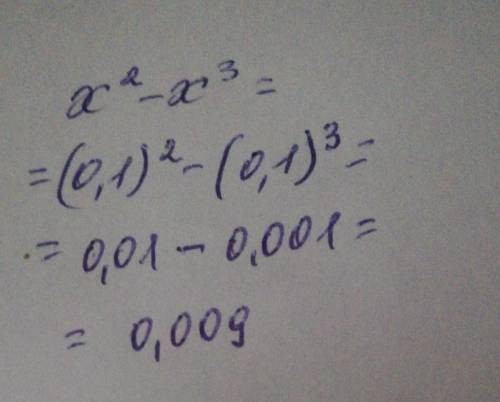 x² - x³ =
= (0,1)² - (0,1)³ =
= 0,01 - 0,001 =
= 0,009